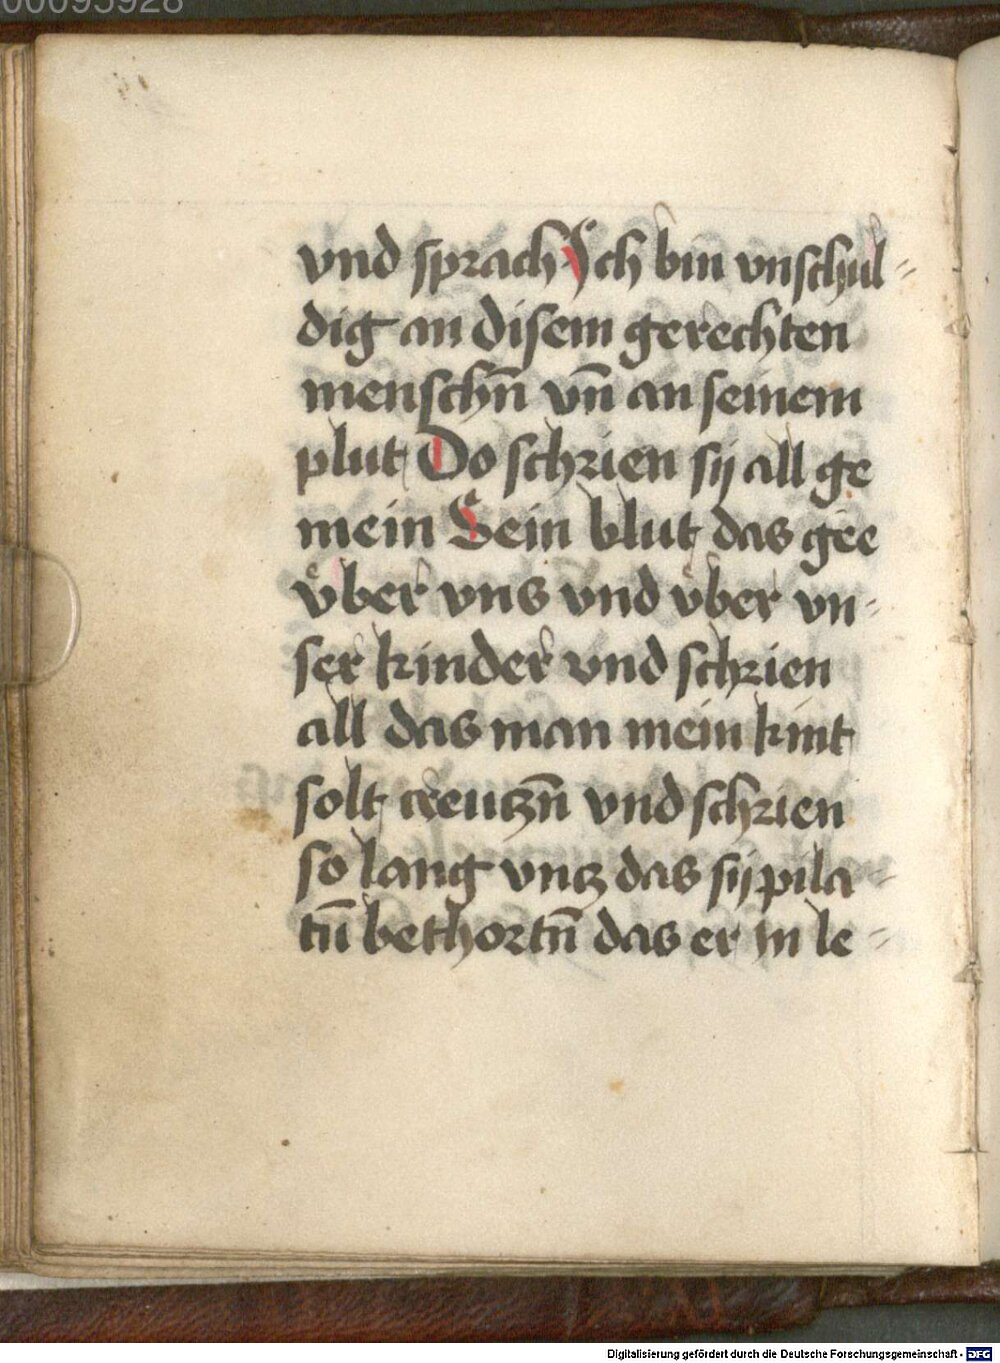 00095928
vnd sprach Ich bin vnschul=
dig an disem gerechten
menschn̄ vn̄ an seinem
plut Do schrien sij all ge
mein Sein blut das gee
vͤber vns vnd vͤber vn=
ser kinder vnd schrien
all das man mein kint
solt creutzn̄ vnd schrien
so lang vntz das sij pila=
tn̄ bethortn̄ das er in le=
Digitalisierung gefördert durch die Deutsche Forschungsgemeinschaft - DFG